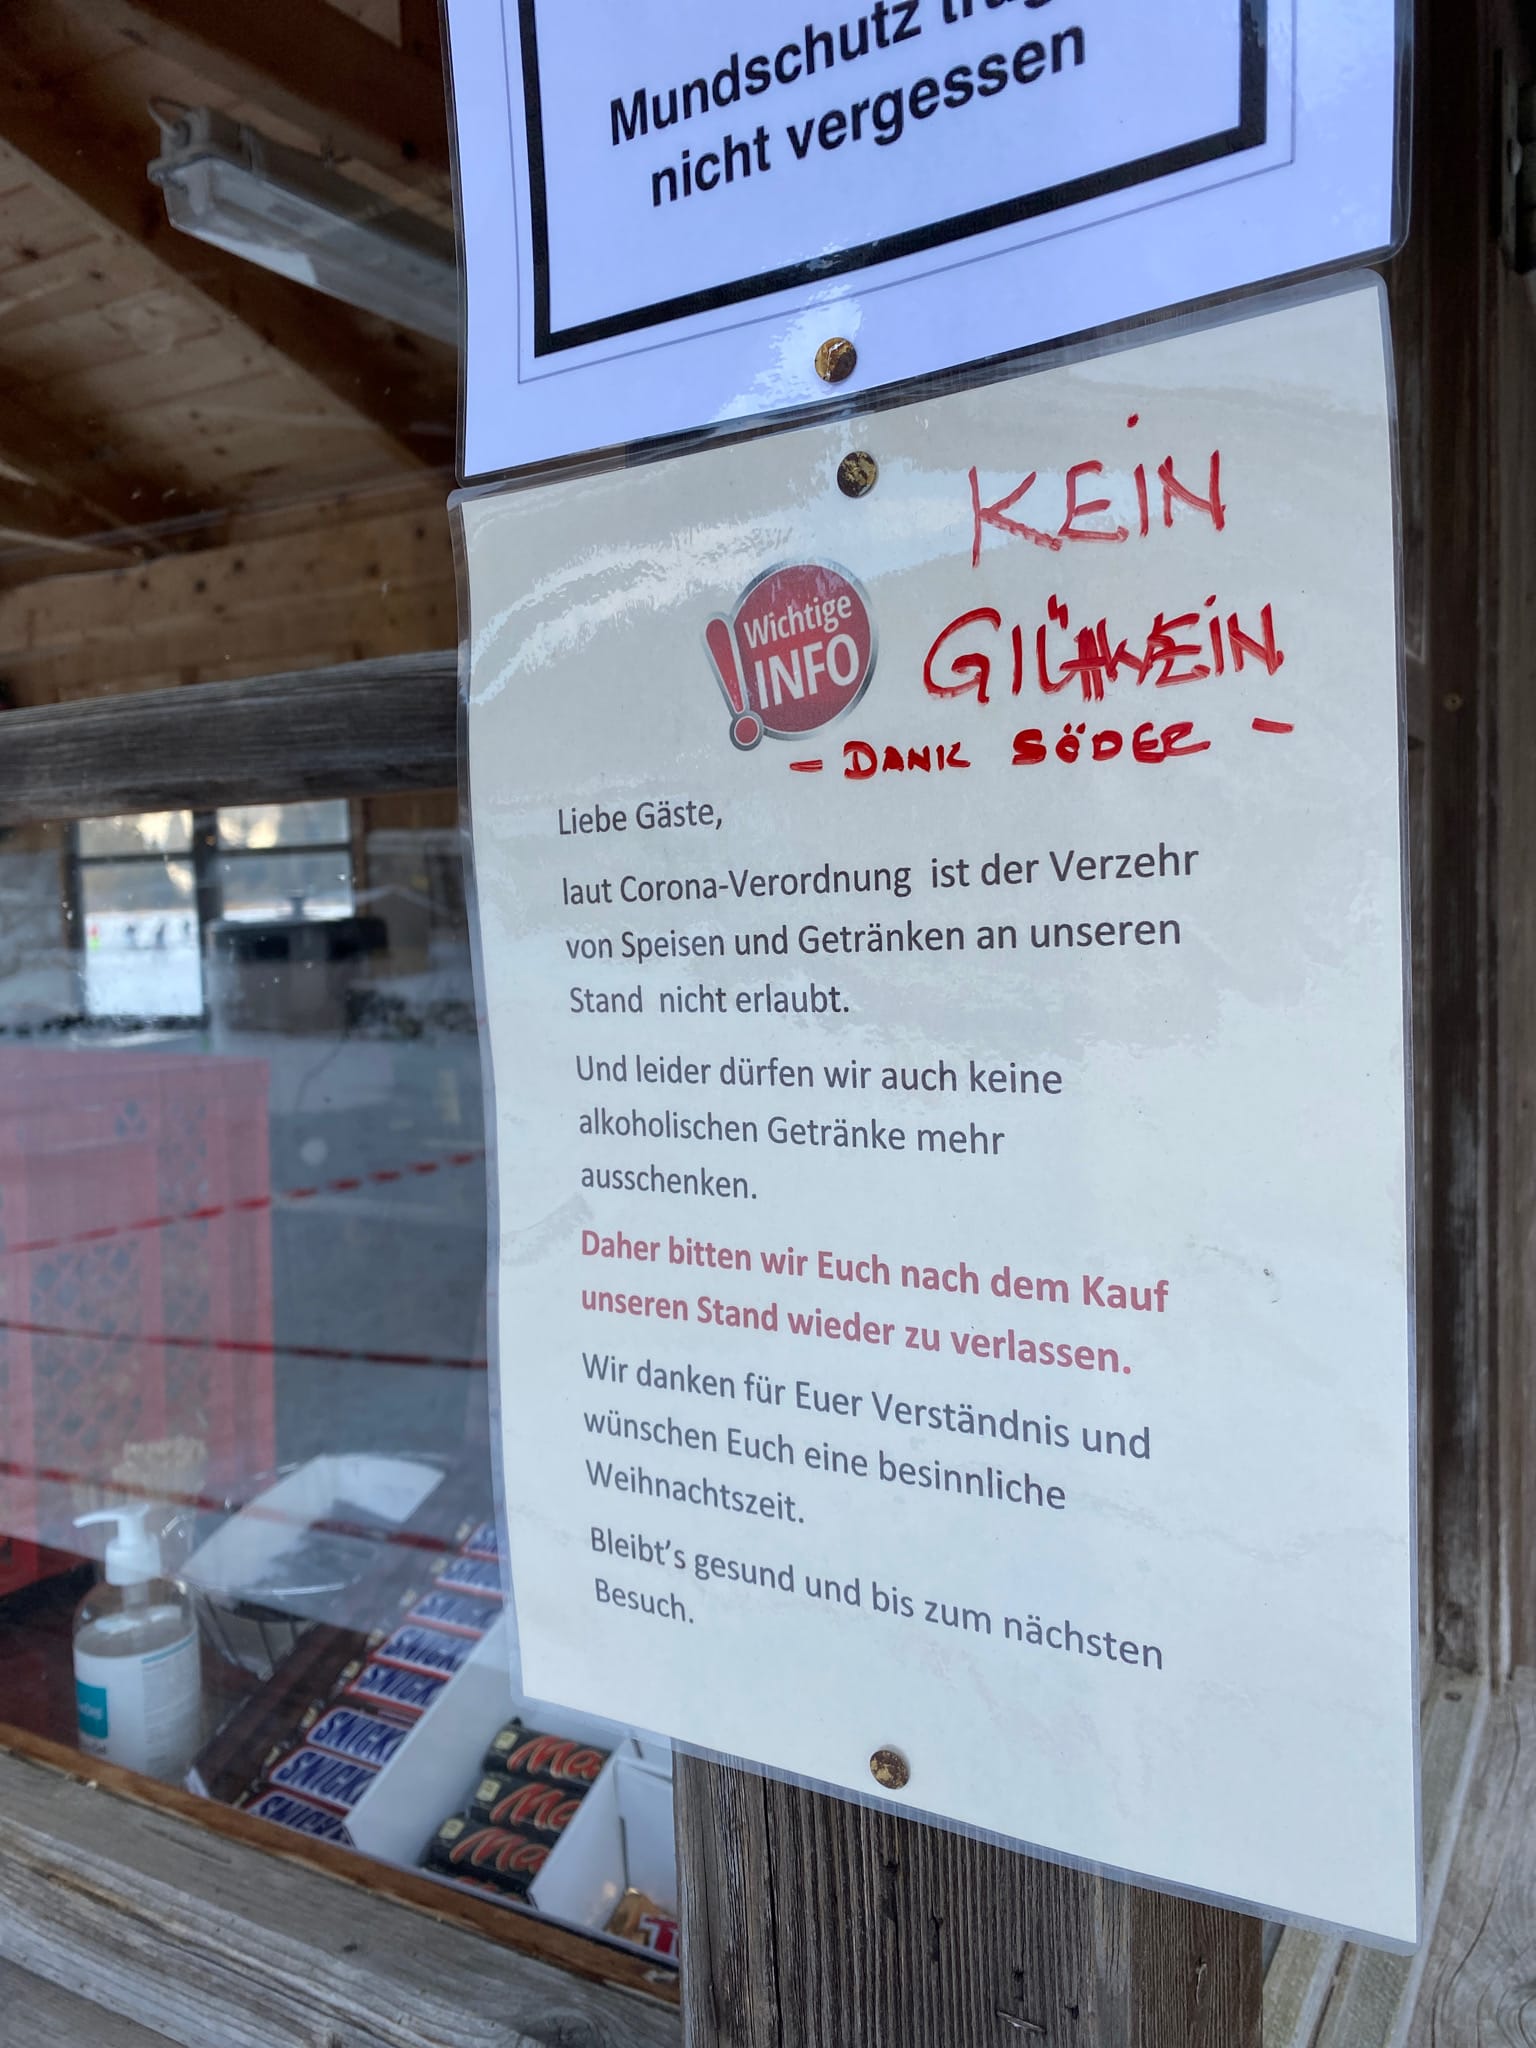 Mundschutz
nicht vergessen
KEIN
Wichtige
INFO
GLÜHWEIN
- DANK SÖDER -
Liebe Gäste,
laut Corona-Verordnung ist der Verzehr
von Speisen und Getränken an unseren
Stand nicht erlaubt.
Und leider dürfen wir auch keine
alkoholischen Getränke mehr
ausschenken.
Daher bitten wir Euch nach dem Kauf
unseren Stand wieder zu verlassen.
Wir danken für Euer Verständnis und
wünschen Euch eine besinnliche
Weihnachtszeit.
Bleibt's gesund und bis zum nächsten
Besuch.